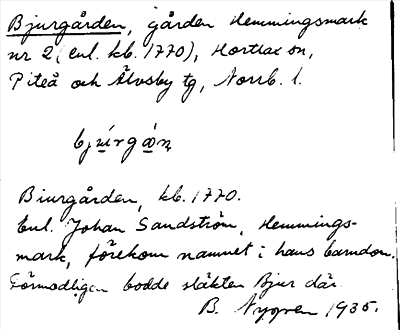 Bjurgården, gården Hemmingsmark
nr 2 (enl. kb. 1770), Hortlax sn,
Piteå och Älvsby tg, Norrb. l.
bjúrgån
Biurgården, kb. 1770.
Enl. Johan Sandström, Hemmings-
mark, förekom namnet i hans barndom.
Förmodligen bodde släkten Bjur där.
B. Nygren 1935.